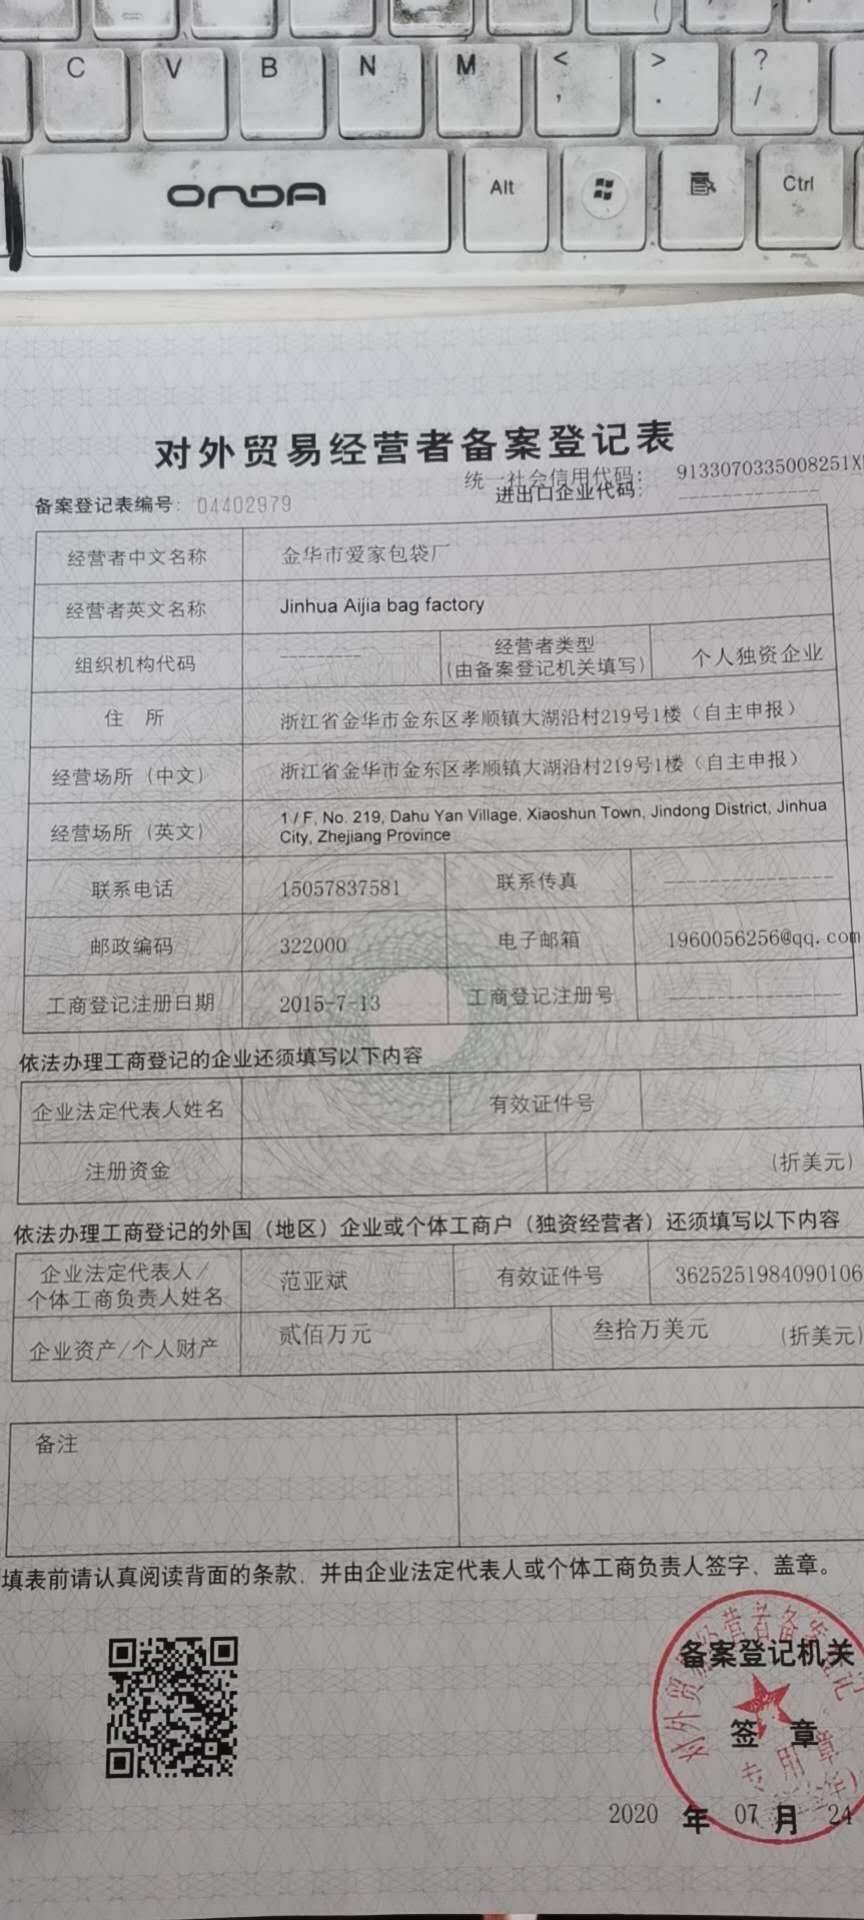 C V B N M < , > . ? /
ONDA Alt Ctrl
对外贸易经营者备案登记表
统一社会信用代码： 9133070335008251X
备案登记表编号： 04402979 进出口企业代码： ————————————
经营者中文名称 金华市爱家包袋厂
经营者英文名称 Jinhua Aijia bag factory
组织机构代码 ———————— 经营者类型 (由备案登记机关填写) 个人独资企业
住 所 浙江省金华市金东区孝顺镇大湖沿村219号1楼（自主申报）
经营场所（中文） 浙江省金华市金东区孝顺镇大湖沿村219号1楼（自主申报）
经营场所（英文） 1 / F, No. 219, Dahu Yan Village, Xiaoshun Town, Jindong District, Jinhua
City, Zhejiang Province
联系电话 15057837581 联系传真 ————————————————
邮政编码 322000 电子邮箱 1960056256@qq.com
工商登记注册日期 2015-7-13 工商登记注册号 ————————————————
依法办理工商登记的企业还须填写以下内容
企业法定代表人姓名 有效证件号
注册资金 (折美元)
依法办理工商登记的外国（地区）企业或个体工商户（独资经营者）还须填写以下内容
企业法定代表人/
个体工商负责人姓名 范亚斌 有效证件号 3625251984090106
企业资产/个人财产 贰佰万元 叁拾万美元 (折美元)
备注
填表前请认真阅读背面的条款，并由企业法定代表人或个体工商负责人签字、盖章。
对外贸易经营者备案登记
备案登记机关
签 章
专用章
2020 年 07 月 24